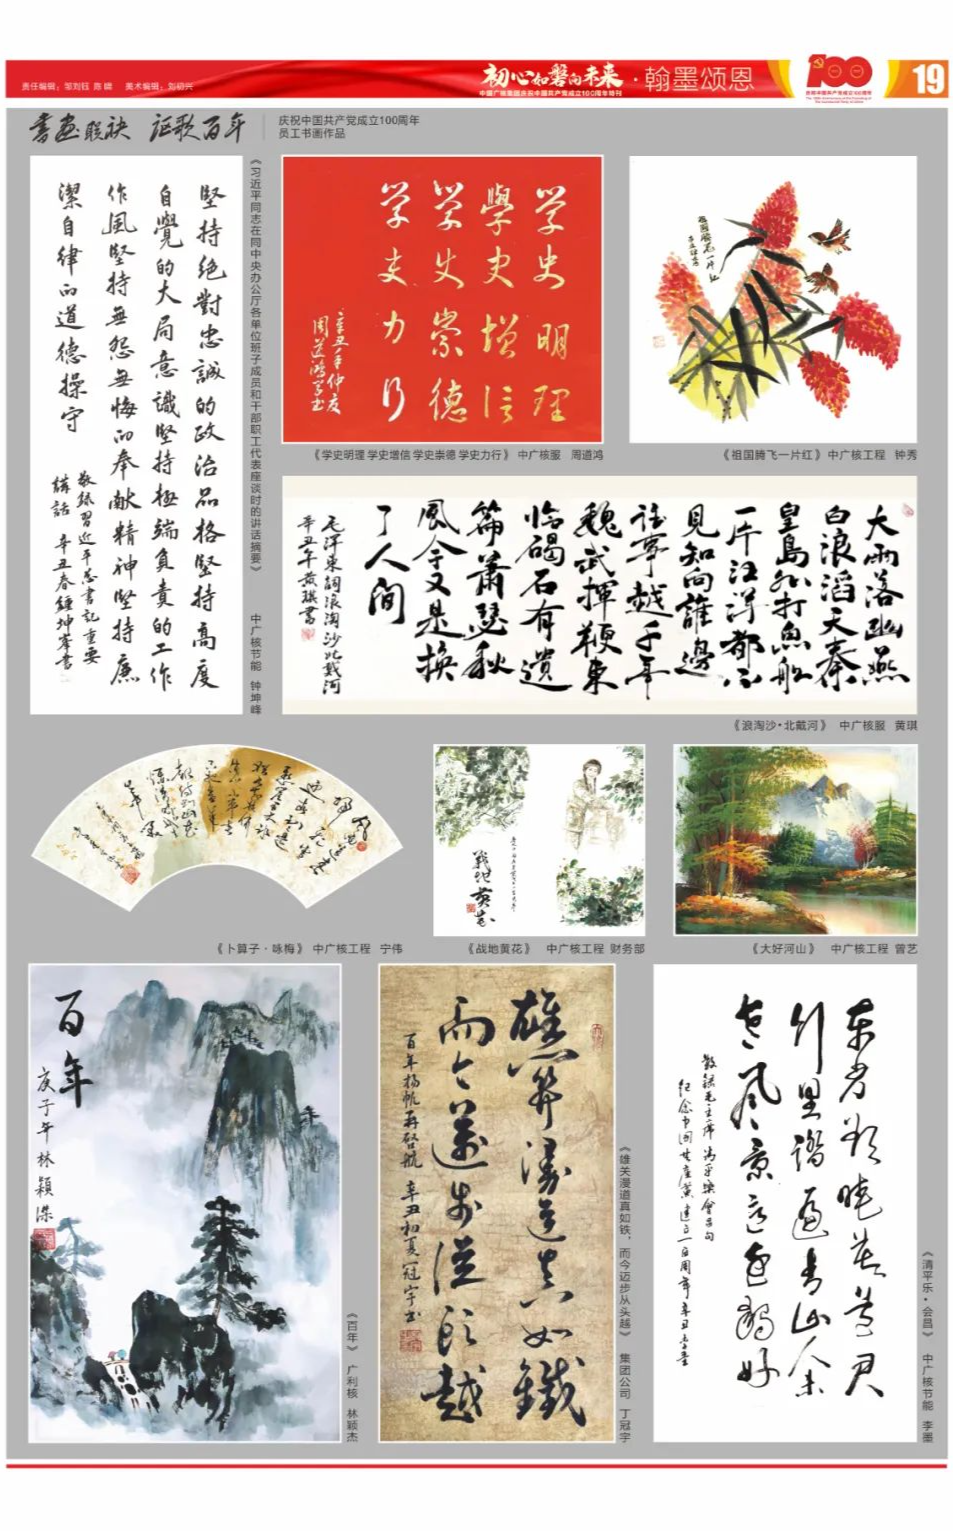 责任编辑：邹刘钰 陈 婧 美术编辑：刘初兴
初心如磐向未来·翰墨颂恩
中国广核集团庆祝中国共产党成立100周年特刊
100
庆祝中国共产党成立100周年
19
书画联袂 讴歌百年
庆祝中国共产党成立100周年
员工书画作品
堅持絕對忠誠的政治品格堅持高度
自覺的大局意識堅持極端負責的工作
作風堅持無怨無悔的奉献精神堅持廉
潔自律的道德操守
敬錄習近平总書記重要
講話 辛丑春鍾坤峯書
《习近平同志在同中央办公厅各单位班子成员和干部职工代表座谈时的讲话摘要》 中广核节能 钟坤峰
学史明理
學史增信
学史崇德
学史力行
辛丑年仲夏
周道鴻書
《学史明理 学史增信 学史崇德 学史力行》 中广核服 周道鸿
祖國腾飞一片红
《祖国腾飞一片红》 中广核工程 钟秀
大雨落幽燕
白浪滔天秦
皇島外打魚船
一片汪洋都不
見知向誰邊
往事越千年
魏武揮鞭東
临碣石有遺
篇蕭瑟秋
風今又是换
了人间
毛泽東詞浪淘沙北戴河
辛丑年黄琪書
《浪淘沙·北戴河》 中广核服 黄琪
《卜算子·咏梅》 中广核工程 宁伟
戰地黄花
《战地黄花》 中广核工程 财务部
《大好河山》 中广核工程 曾艺
百年
庚子年林颖傑
《百年》 广利核 林颖杰
雄关漫道真如鐵
而今迈步從头越
百年扬帆再啓航 辛丑初夏冠宇书
《雄关漫道真如铁，而今迈步从头越》 集团公司 丁冠宇
东方欲晓莫道君
行早踏遍青山人未
老风景这边独好
敬録毛主席清平樂會昌句
纪念中国共產黨建立一百周年辛丑李墨
《清平乐·会昌》 中广核节能 李墨